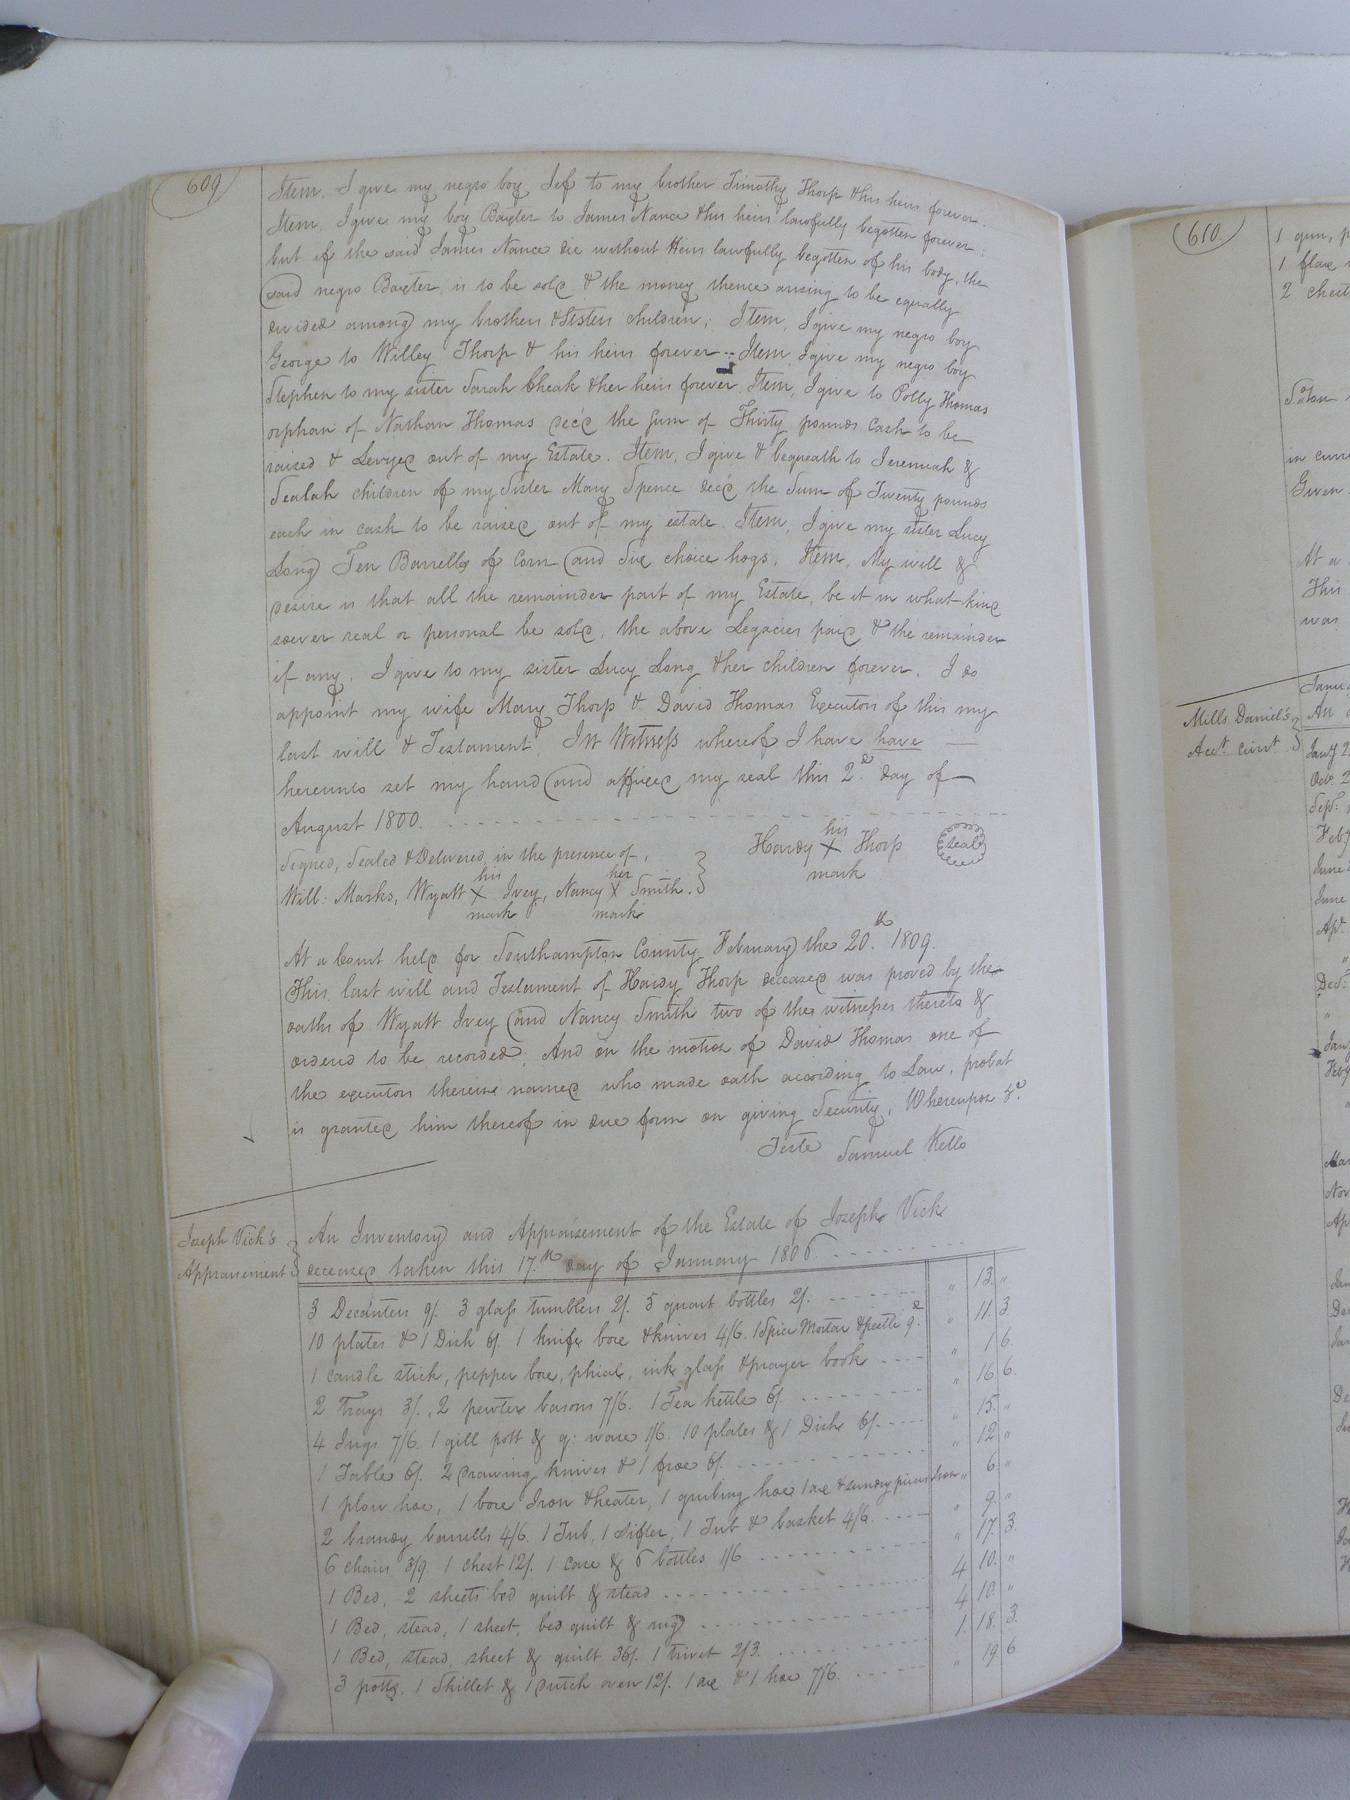 609
Item. I give my negro boy Jef to my brother Timothy Thorp & his heirs forever.
Item, I give my boy Baxter to James Nance & his heirs lawfully begotten forever;
but if the said James Nance die without Heirs lawfully begotten of his body, the
said negro Baxter is to be sold & the money thence arising to be equally
divided among my brothers & Sisters children; Item, I give my negro boy
George to Willey Thorp & his heirs forever. Item I give my negro boy
Stephen to my sister Sarah Cheak & her heirs forever. Item, I give to Polly Thomas
orphan of Nathan Thomas dec'd the Sum of Thirty pounds Cash to be
raised & Levyed out of my Estate. Item, I give & bequeath to Jeremiah &
Sealah children of my Sister Mary Spence dec'd the Sum of Twenty pounds
each in cash to be raised out of my estate. Item, I give my sister Lucy
Long Ten Barrells of Corn and Six choice hogs. Item, My will &
desire is that all the remainder part of my Estate, be it in what kind
soever real or personal be sold, the above Legacies paid & the remainder
if any, I give to my sister Lucy Long & her children forever. I do
appoint my wife Mary Thorp & David Thomas Executors of this my
last will & Testament. In Witness whereof I have have
hereunto set my hand and affixed my seal this 2.d day of
August 1800.
Signed, Sealed & Delivered, in the presence of,
Will: Marks, Wyatt his X mark Ivey, Nancy her X mark Smith.
Hardy his X mark Thorp Seal
At a Court held for Southampton County February the 20.th 1809.
This last will and Testament of Hardy Thorp deceased was proved by the
oaths of Wyatt Ivey and Nancy Smith two of the witnesses thereto &
ordered to be recorded. And on the motion of David Thomas one of
the executors therein named who made oath according to Law, probat
is granted him thereof in due form on giving Security. Whereupon &.c
Teste Samuel Kello
Joseph Vick's
Appraisement
An Inventory and Appraisement of the Estate of Joseph Vick
deceased taken this 17.th day of January 1806
3 Decanters 9/. 3 glass tumblers 2/. 5 quart bottles 2/. " 13. "
10 plates & 1 Dish 6/. 1 knife box & knives 4/6. 1 Spice Mortar & pestle 9.d " 11. 3
1 candle stick, pepper box, phial, ink glass & prayer book " 1 6.
2 Trays 3/., 2 pewter basons 7/6. 1 Tea kettle 6/. " 16. 6.
4 Jugs 7/6. 1 gill pott & q: ware 1/6. 10 plates & 1 Dish 6/. " 15. "
1 Table 6/. 2 drawing knives & 1 froe 6/. " 12. "
1 plow hoe, 1 box Iron & heater, 1 grubing hoe 1 axe & sundry pieces Iron " 6. "
2 brandy barrells 4/6. 1 Tub, 1 sifter, 1 Tub & basket 4/6. " 9. "
6 Chairs 3/9. 1 chest 12/. 1 case & 6 bottles 1/6 " 17. 3.
1 Bed, 2 sheets bed quilt & stead 4 10. "
1 Bed, stead, 1 sheet, bed quilt & rug 4 10. "
1 Bed, stead, sheet & quilt 36/. 1 trivet 2/3. 1. 18. 3.
3 potts, 1 Skillet & 1 dutch oven 12/. 1 axe & 1 hoe 7/6. " 19. 6
610.
1 gun,
1 flax
2 Chest
in curr
Given
At a
This
was
Mills Daniel's
Acct. Curnt.
An
Jany 2
Octo 2
Sept.
Feby
June
June
Ap.
Dec.
Jany
Feby
Mar
Nov
Ap
Jan
De
Jan
De